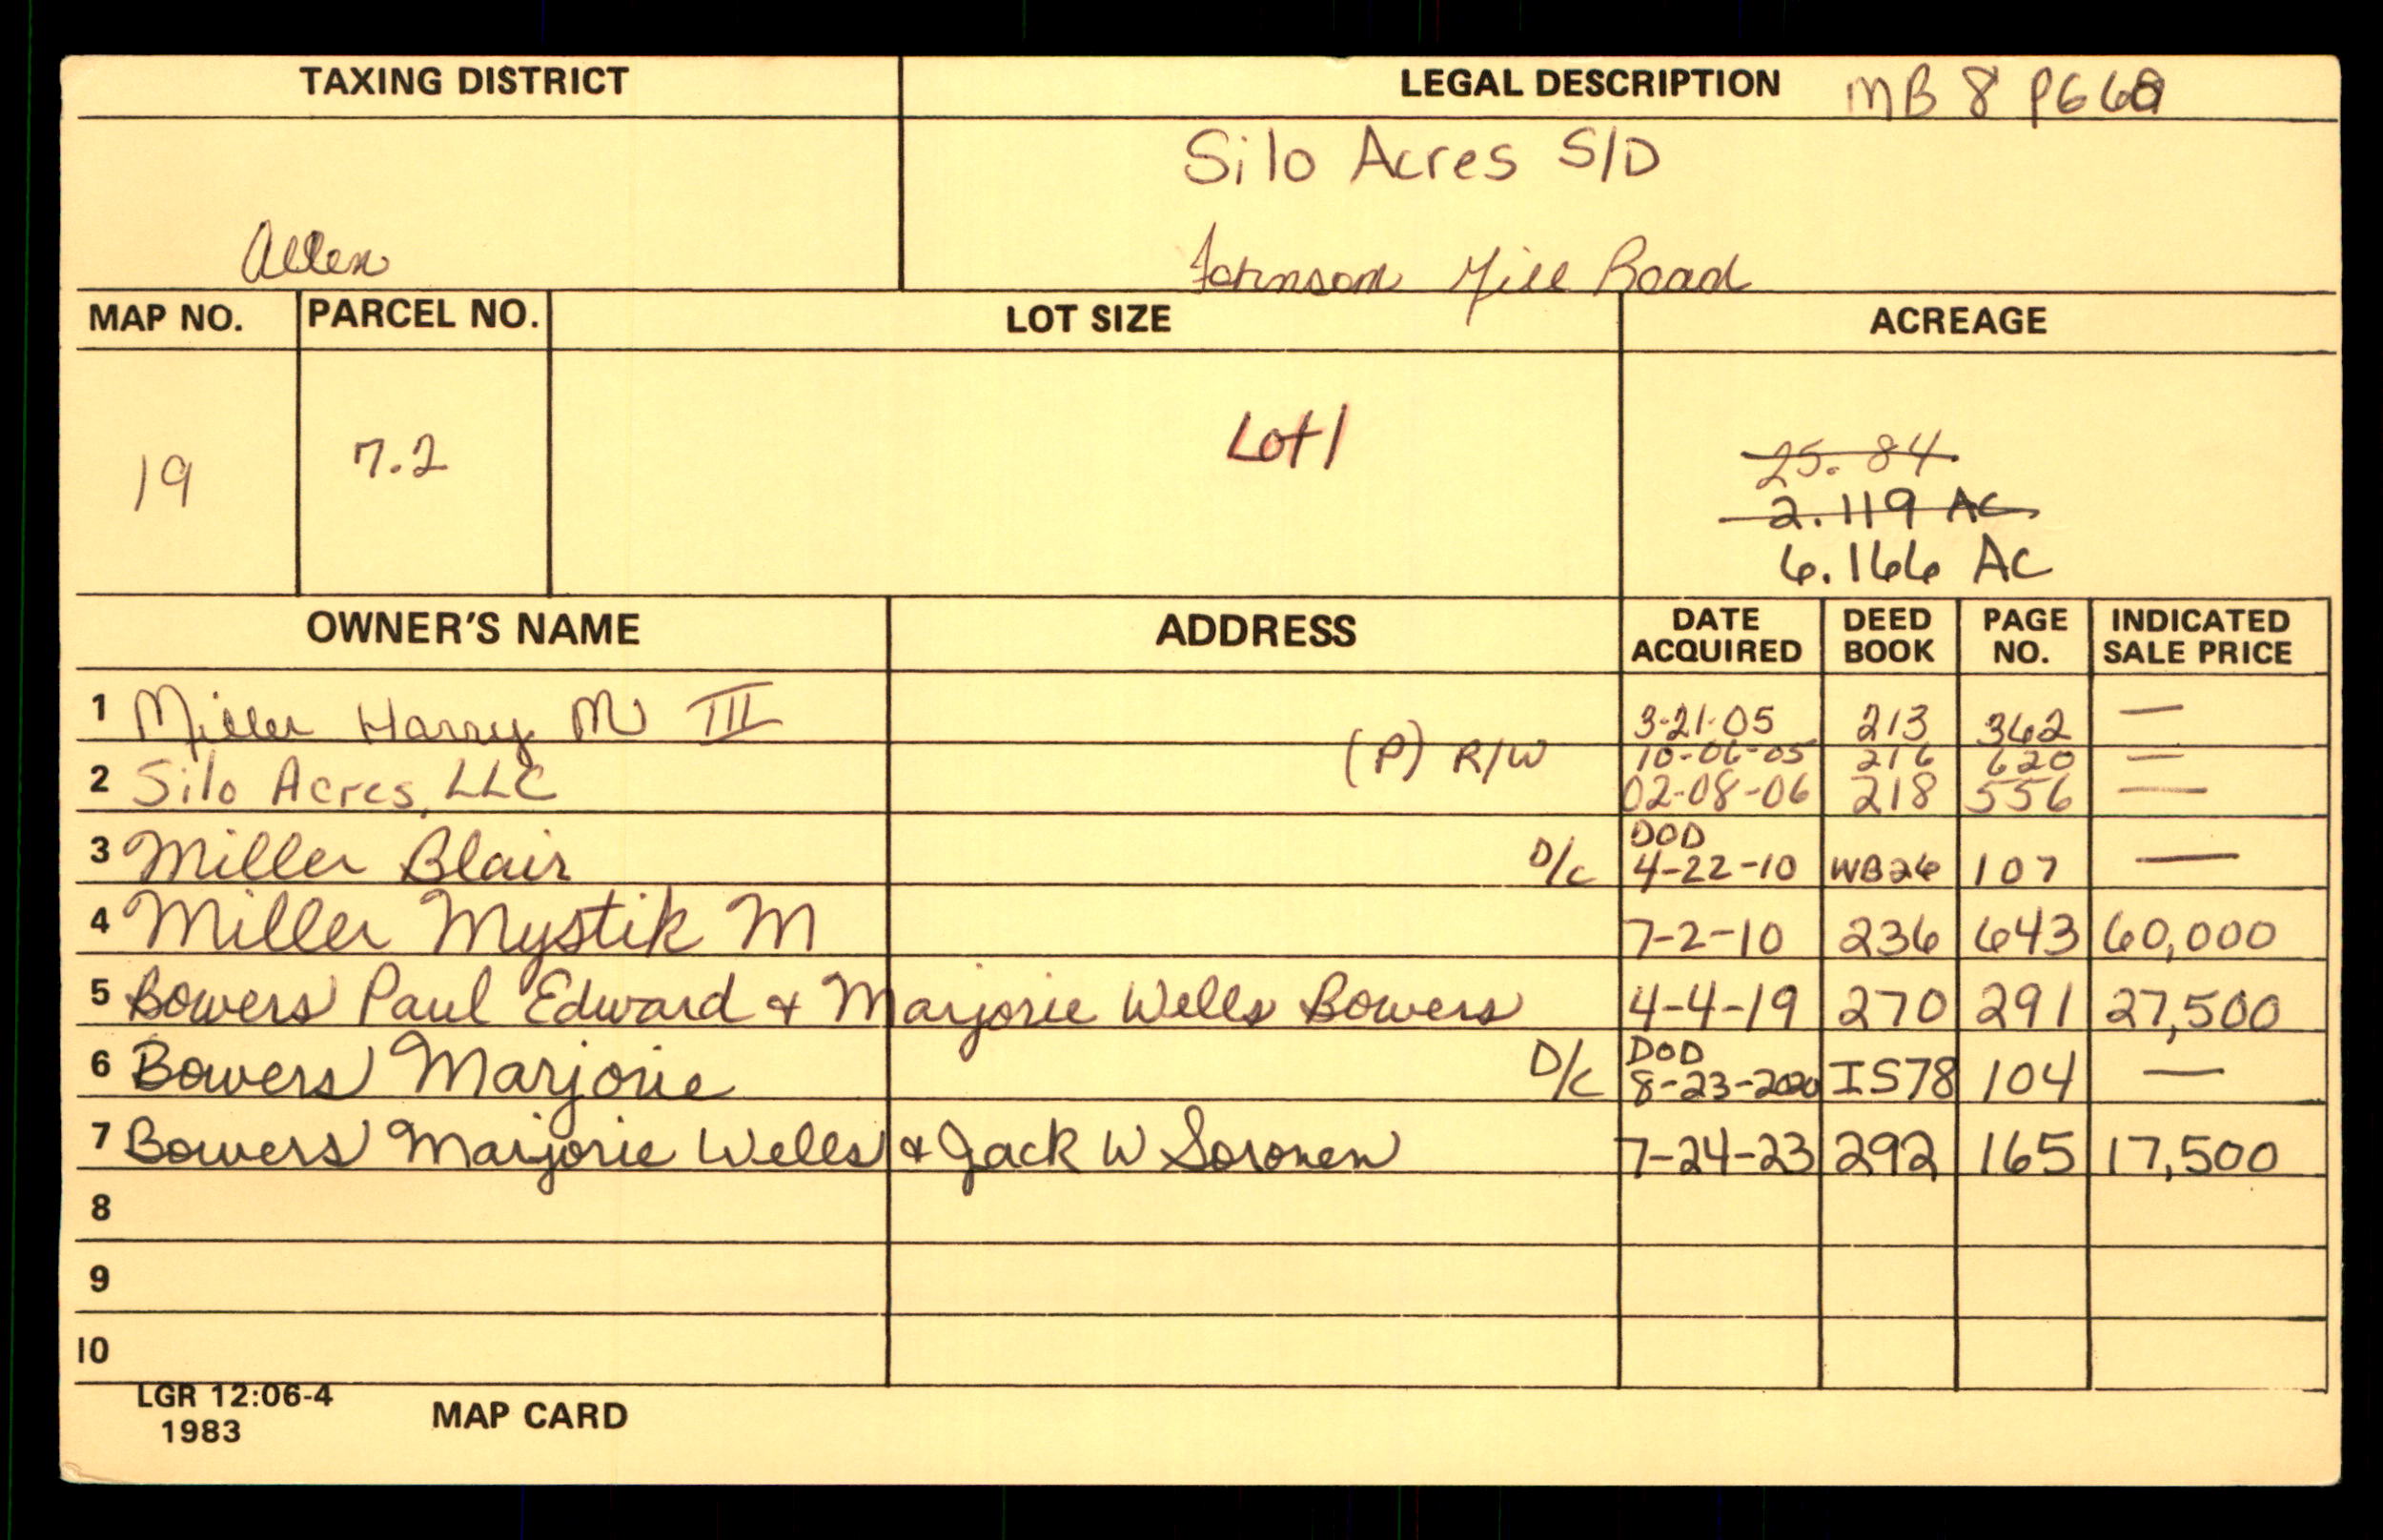 TAXING DISTRICT LEGAL DESCRIPTION MB 8 PG
Silo Acres S/D
Allen Johnson Mill Road
MAP NO. PARCEL NO. LOT SIZE ACREAGE
19 7.2 Lot 1 25.84
2.119 AC
6.166 AC
OWNER'S NAME ADDRESS DATE ACQUIRED DEED BOOK PAGE NO. INDICATED SALE PRICE
1 Miller Harry M III 3-21-05 213 362 —
(P) R/W 10-06-05 216 620 —
2 Silo Acres, LLC 02-08-06 218 556 —
3 Miller Blair D/C DOD 4-22-10 WB26 107 —
4 Miller Mystik M 7-2-10 236 643 60,000
5 Bowers Paul Edward & Marjorie Wells Bowers 4-4-19 270 291 27,500
6 Bowers Marjorie D/C DOD 8-23-2020 IS78 104 —
7 Bowers Marjorie Wells & Jack W Soronen 7-24-23 292 165 17,500
8
9
10
LGR 12:06-4
1983 MAP CARD